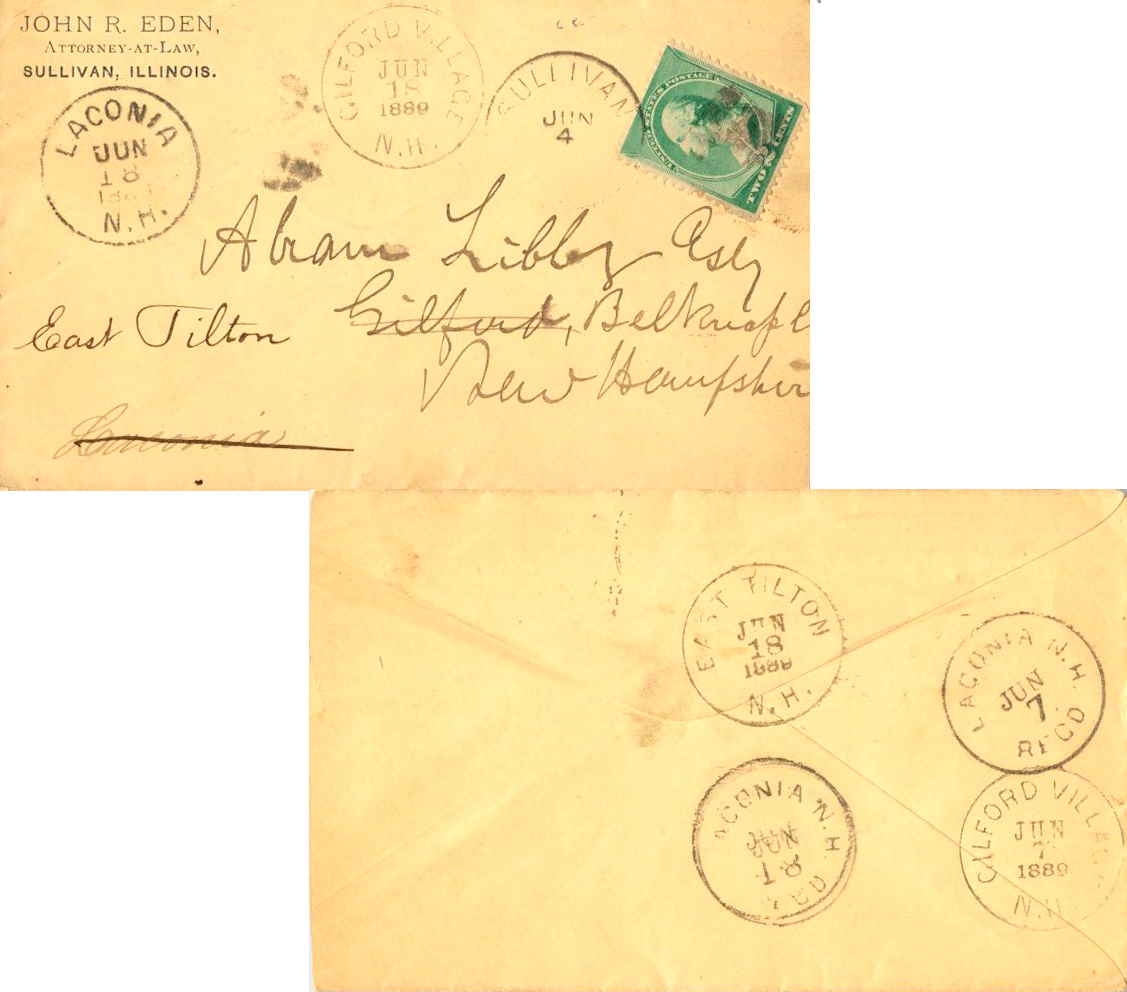 JOHN R. EDEN,
ATTORNEY-AT-LAW,
SULLIVAN, ILLINOIS.
LACONIA
JUN
18
N.H.
GILFORD VILLAGE
JUN
18
1889
N.H.
SULLIVAN
JUN
4
UNITED STATES POSTAGE
TWO
Abram Libby Esq
East Tilton Gilford, Belknap C
New Hampshir
Laconia
EAST TILTON
JUN
18
1889
N.H.
LACONIA N.H.
JUN
7
REC'D
ACONIA N.H.
JUN
18
GILFORD VILLAGE
JUN
7
1889
N.H.